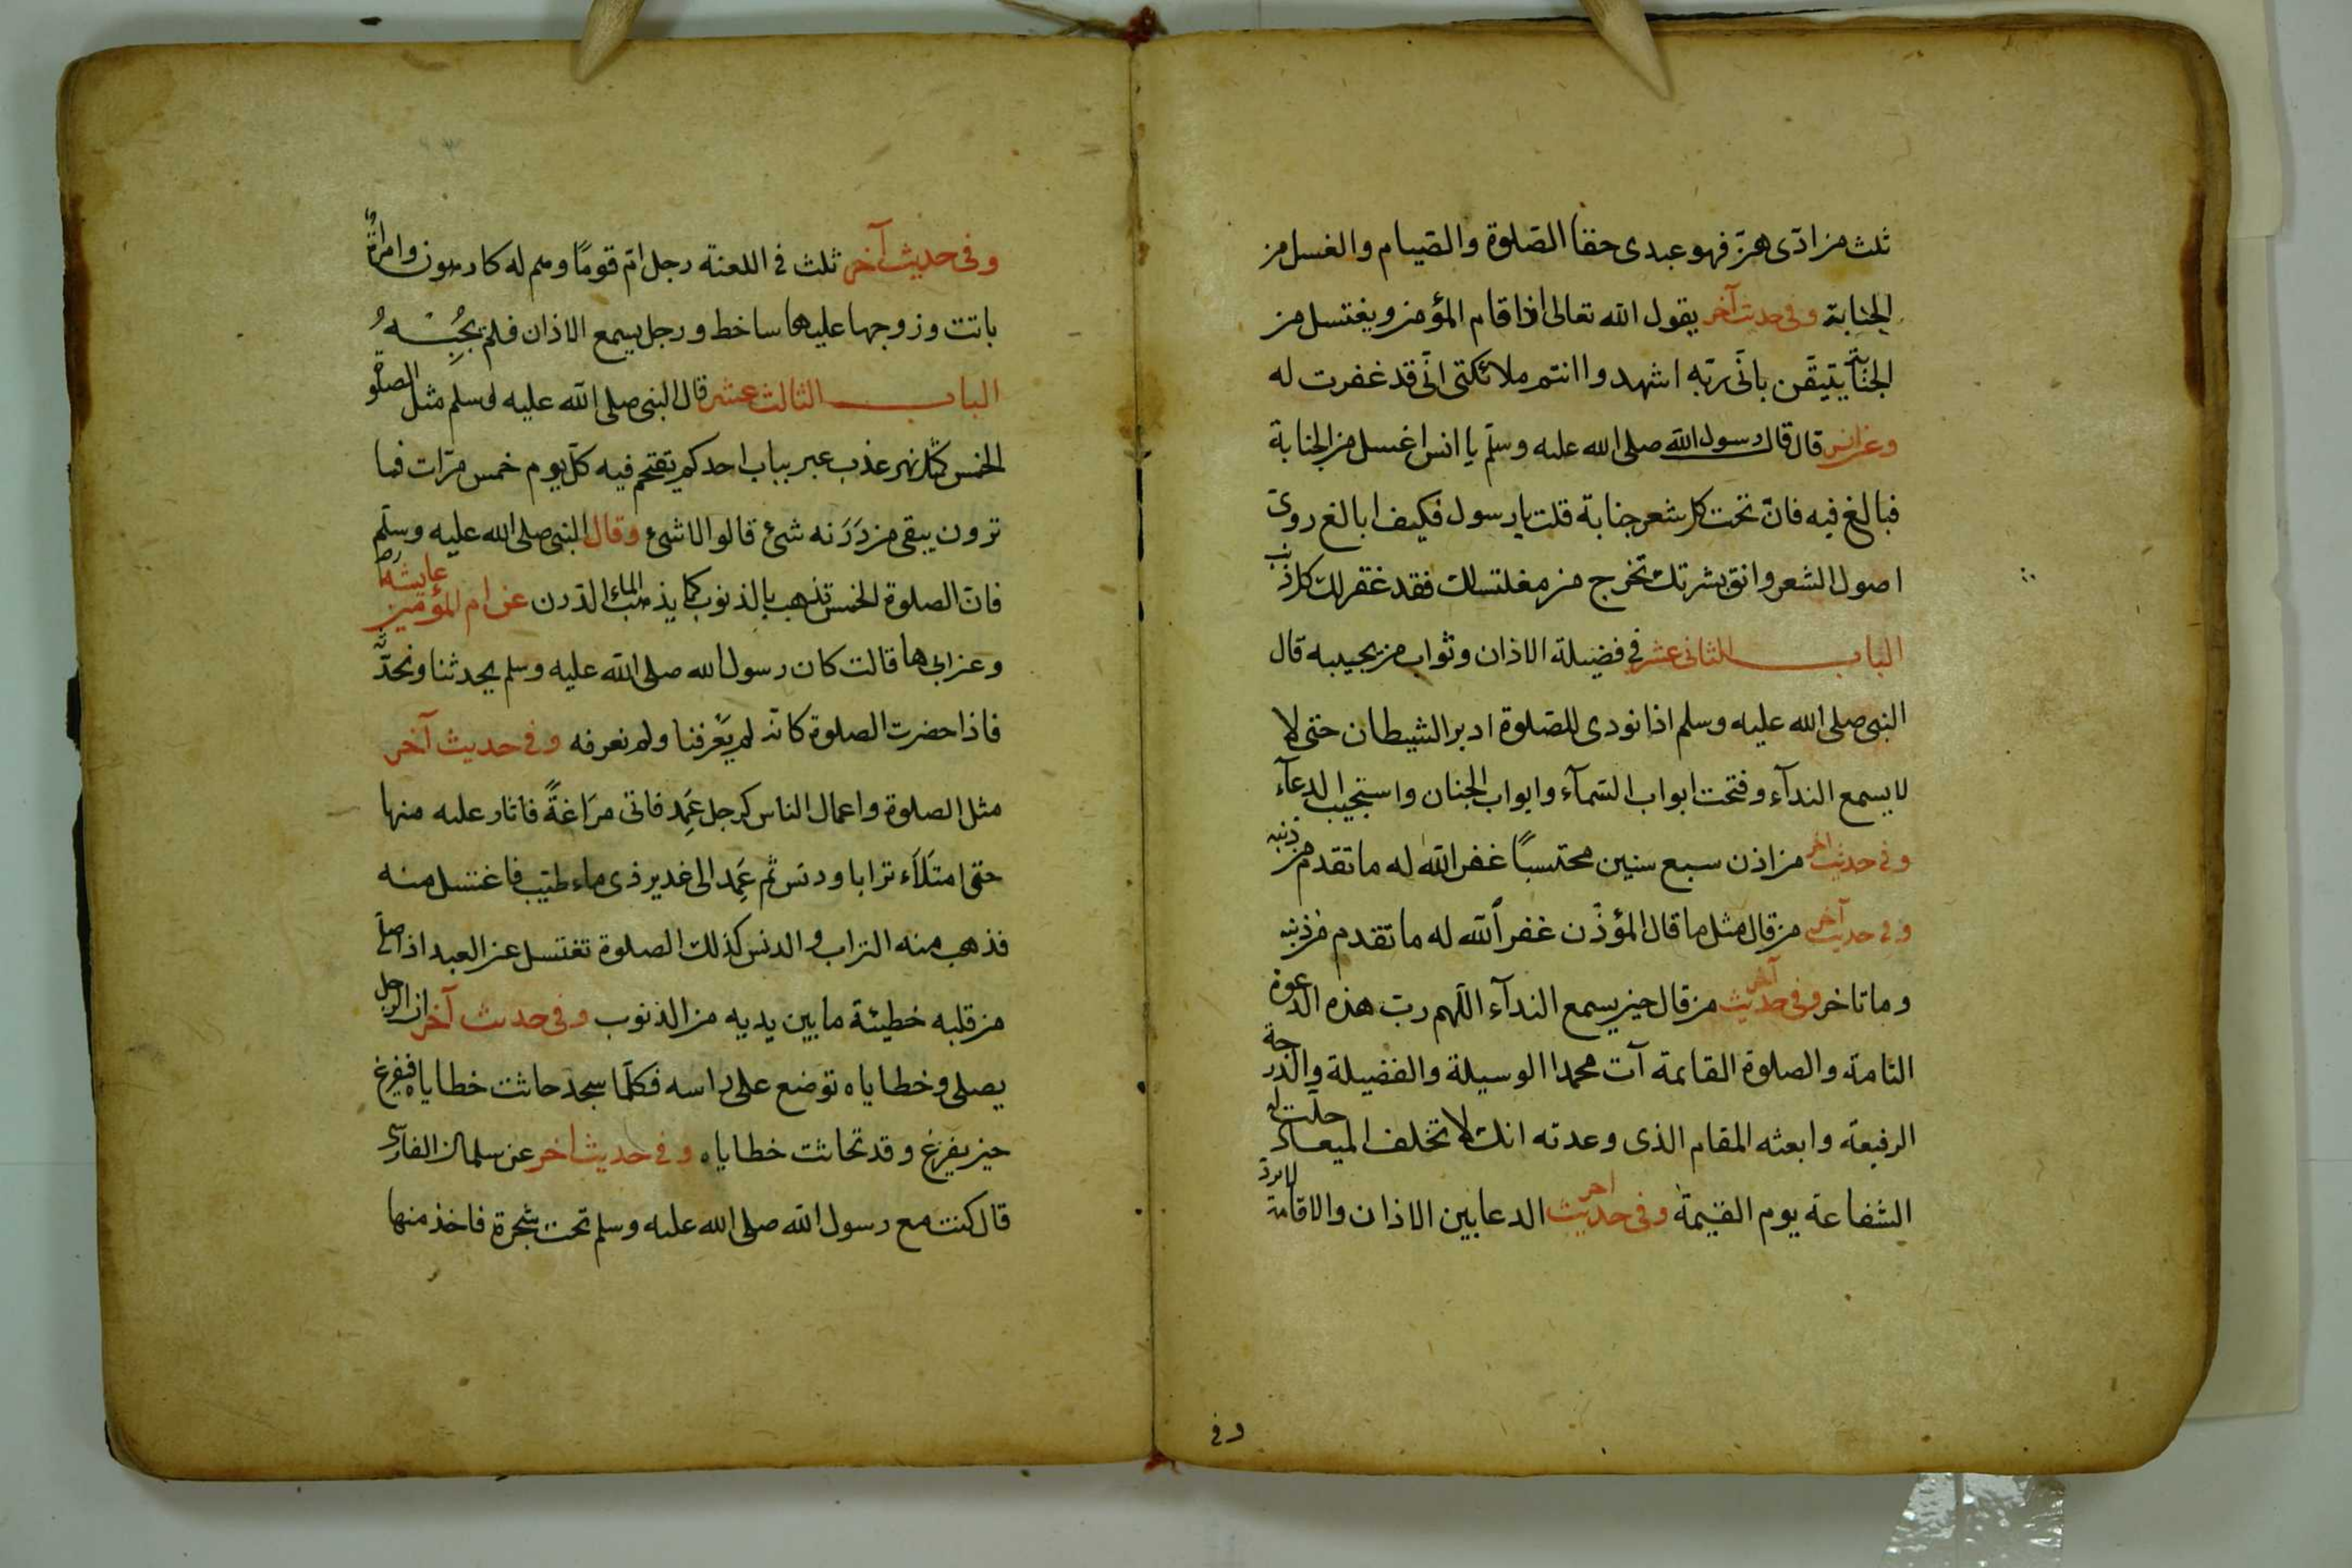 ثلث من ادّى هنّ فهو عبدى حقا الصّلوة والصّيام والغسل من
الجنابة وفى حديث آخر يقول الله تعالى اذا قام المؤمن ويغتسل من
الجنابة يتيقّن بانّى ربّه اشهدوا انتم ملائكتى انّى قد غفرت له
وعن انس قال قال رسول الله صلى الله عليه وسلّم يا انس اغسل من الجنابة
فبالغ فيه فانّ تحت كل شعر جنابة قلت يا رسول فكيف ابالغ روىّ
اصول الشعر وانق بشرتك تخرج من مغلتسلك فقد غفر لك كل ذنب
الباب الثانى عشر فى فضيلة الاذان وثواب من يجيبه قال
النبى صلى الله عليه وسلم اذا نودى للصّلوة ادبر الشيطان حتى لا
لا يسمع الندآء وفتحت ابواب السّمآء وابواب الجنان واستجيب الدعآء
وفى حديث اخر من اذن سبع سنين محتسبًا غفر الله له ما تقدم من ذنبه
وفى حديث آخر من قال مثل ما قال المؤذّن غفر الله له ما تقدم من ذنبه
وما تاخر وفى حديث آخر من قال حين يسمع الندآء اللّهم ربّ هذه الدعوة
التامة والصلوة القائمة آت محمدا الوسيلة والفضيلة والدرجة
الرفيعة وابعثه المقام الذى وعدته انك لا تخلف الميعاد حلّت له
الشفاعة يوم القيمة وفى حديث اخر الدعا بين الاذان والاقامة لا يردّ
وفى
وفى حديث آخر ثلث فى اللعنة رجل امّ قومًا وهم له كارهون وامراةٌ
باتت وزوجها عليها ساخط ورجل يسمع الاذان فلم يجُبِْهُ
الباب الثالث عشر قال النبى صلى الله عليه وسلم مثل الصلوة
الخمس كمثل نهر عذب عبر بباب احدكم يقتحم فيه كلّ يوم خمس مرّات فما
ترون يبقى من دَرَنه شئ قالوا لا شئ وقال النبى صلى الله عليه وسلّم
فانّ الصلوة الخمس تذهب بالذنوب كما يذهب الماء الدّرن عن ام المؤمنين عايشة رض
وعن ابيها قالت كان رسول الله صلى الله عليه وسلم يحدثنا ونحدّثه
فاذا حضرت الصلوة كانّه لم يَعْرفنا ولم نعرفه وفى حديث آخر
مثل الصلوة واعمال الناس كرجل عَمِد فاتى مرَاغةً فاثار عليه منها
حتى امتَلَاَء ترابا ودنس ثم عَمِد الى غدير ذى ماء طيّب فاغتسل منه
فذهب منه التراب والدنس كذلك الصلوة تغتسل عن العبد اذا صلّى
من قلبه خطيئة ما بين يديه من الذنوب وفى حديث آخر ان الرجل
يصلى وخطاياه توضع على راسه فكلّما سجد حاثت خطاياه فيفرغ
حين يفرغ وقد تحاثت خطاياه وفى حديث اخر عن سلمان الفارسى
قال كنت مع رسول الله صلى الله عليه وسلم تحت شجرة فاخذ منها